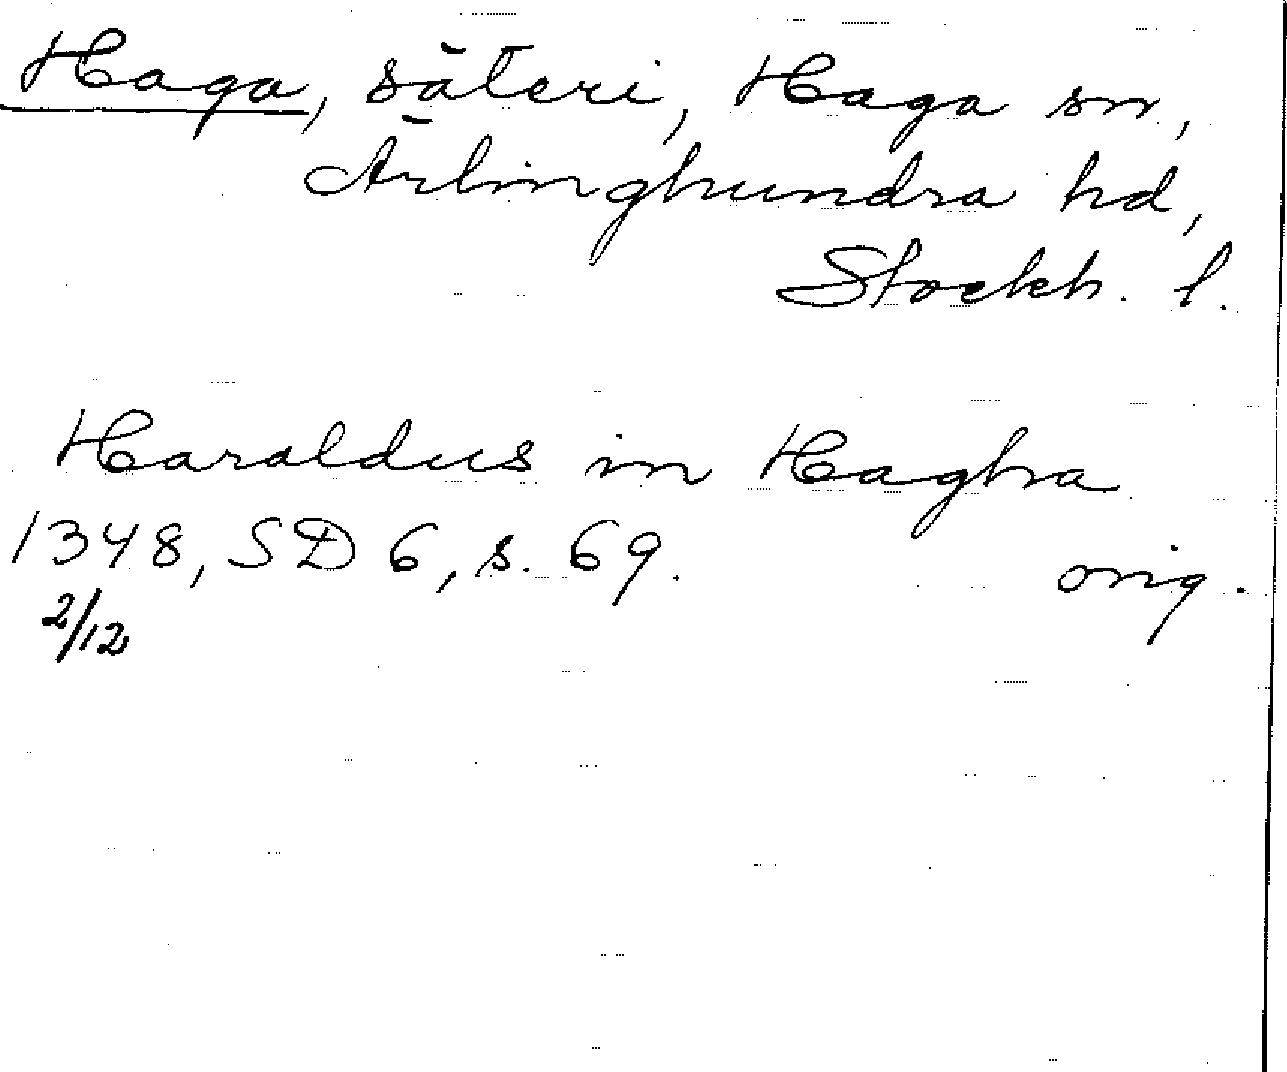 Haga, säteri, Haga sn,
Ärlinghundra hd,
Stockh. l.
Haraldus in Haghra
1348, SD 6, s. 69. orig.
2/12